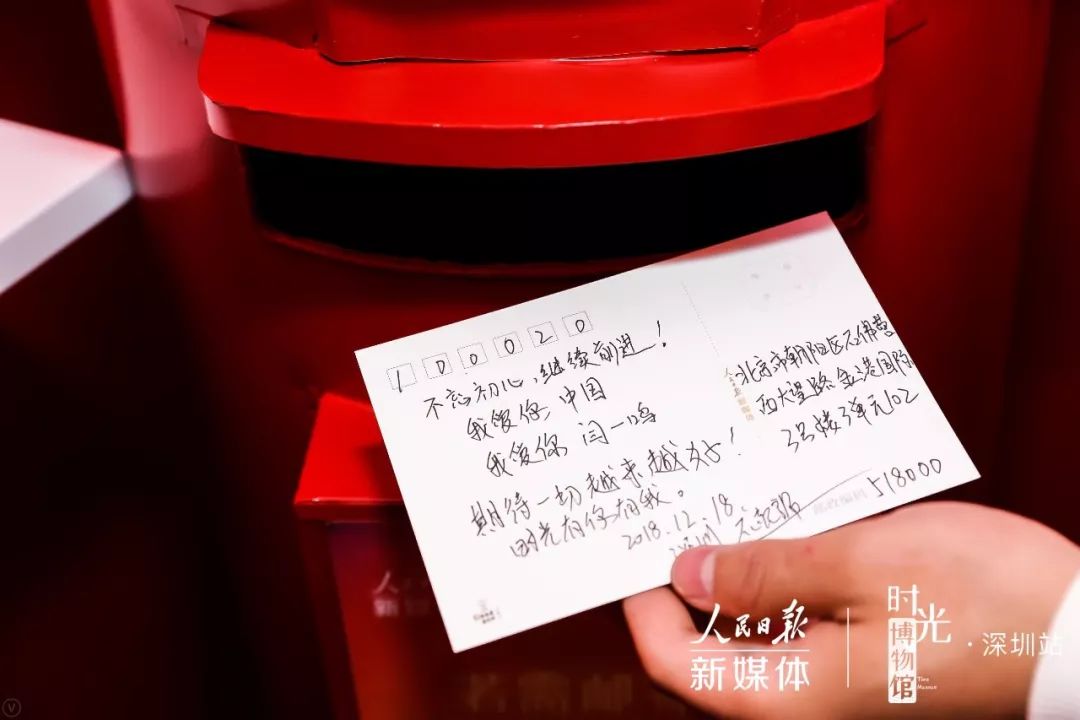 100020
不忘初心,继续前进!
我爱你,中国
我爱你 闫一鸣
期待一切越来越好!
时光有你有我。
2018.12.18.
深圳
北京市朝阳区石佛营
西大望路金港国际
3号楼3单元102
邮政编码 518000
人民日报
新媒体
时光
博物馆
Time
Museum
·深圳站
人民日报
新媒体
V